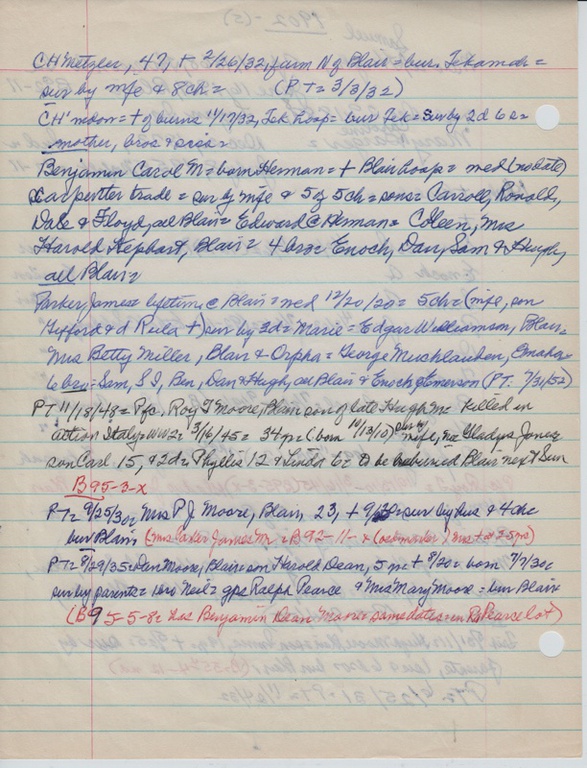 CH Metzler, 47, + 2/26/32, farm N of Blair = bur. Tekamah =
sur by wife & 8 ch = (PT = 3/3/32)
CH' moon = + of burns 11/17/32, Tek hosp = bur Tek = sur by 2d 6 s =
mother, bros & sis =
Benjamin Carol M = born Herman = + Blair hosp = med (no date)
carpenter trade = sur by wife & 5 of 5 ch = sons = Carroll, Ronald,
Dale & Floyd, all Blair = Edward @ Herman = Coleen, Mrs
Harold Hephart, Blair = 4 bro = Enoch, Dan, Sam & Hugh,
all Blair =
Parker James = lifetime @ Blair = wed 12/20/20 = 5 ch = (wife, son
Gifford & d Rula +) sur by 3d = Marie = Edgar Williamson, Blair,
Mrs Betty Miller, Blair & Orpha = George Muchlauden, Omaha =
6 bro = Sam, S I, Ben, Dan & Hugh, all Blair & Enoch @ Emerson (PT. 7/31/52)
PT 11/18/48 = Pfc, Roy J Moore, Blair son of late Hugh Mc killed in
action Italy = WW2 = 3/16/45 = 34 yr = (born 10/13/10) sur by wife, nee Gladys Jones
son Carl 15, & 2d = Phyllis 12 & Linda 6 = to be buried Blair next Sun
B95-3-x
PT = 9/25/30 = Mrs P J Moore, Blair, 23, + = sur by hus & 4 ch =
bur Blair (Mrs Parker James M = B-92-11-x (no marker)
PT = 8/29/35 = Dan Moore, Blair = son Harold Dean, 5 yr + 8/20 = born 7/7/30 =
sur by parents = bro Neil = gps Ralph Pearce & Mrs Mary Moore = bur Blair
(B95-5-8 = has Benjamin Dean Moore same dates = in R Pearce lot)